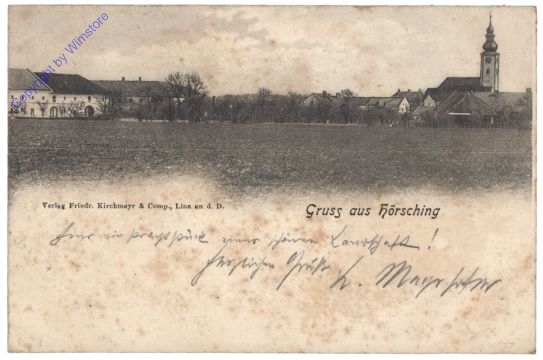 Copyright by Wimstore
Verlag Friedr. Kirchmayr & Comp., Linz an d. D.
Gruss aus Hörsching
ein Prachtstück einer schönen Landschaft!
Herzlichen Gruß
K. Mayrhofer